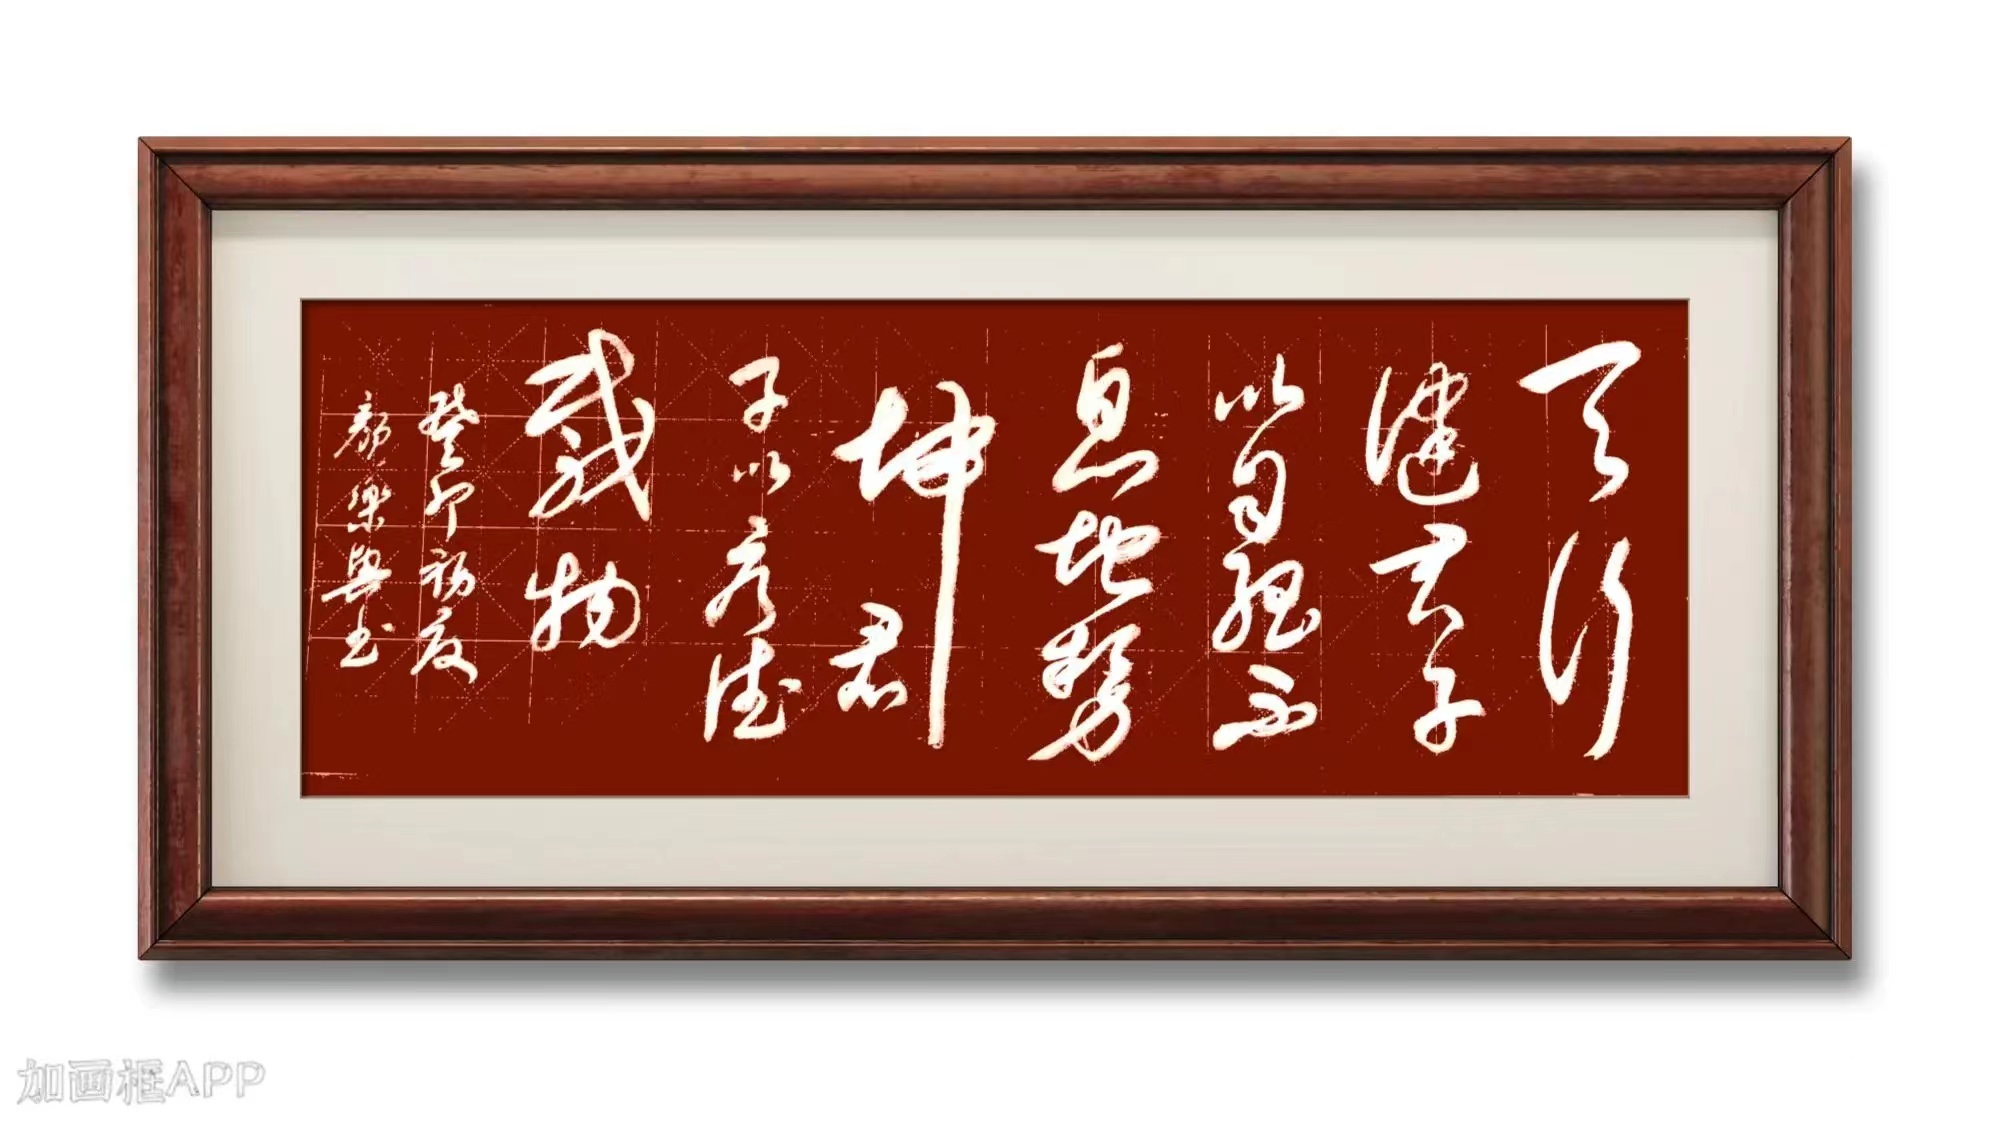 天行
健君子
以自强不
息地势
坤君
子以厚德
载物
癸卯初夏
颜樂与书
加画框APP